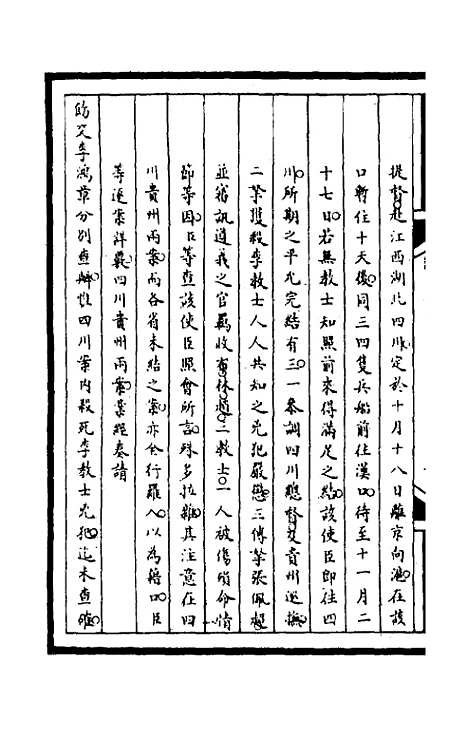 提督赴江西湖北四川定於十月十八日離京向滬在該
口暫住十天後同三四隻兵船前往漢口待至十一月二
十七日若無教士知照前來得滿足之結該使臣即往四
川所期之平允完結有三一參訓四川總督及貴州巡撫
二拏獲殺李教士人人共知之兇犯嚴懲三傳拏張佩超
並審訊遵義之官羈收布林趙二教士一人被傷殞命情
節等因臣等查該使臣照會所言殊多拉雜其注意在四
川貴州兩案而各省未結之案亦全行羅入以為藉口臣
等逐案詳覈四川貴州兩案業經奏請
飭交李鴻章分別查辦惟四川案內殺死李教士兇犯迄未查確